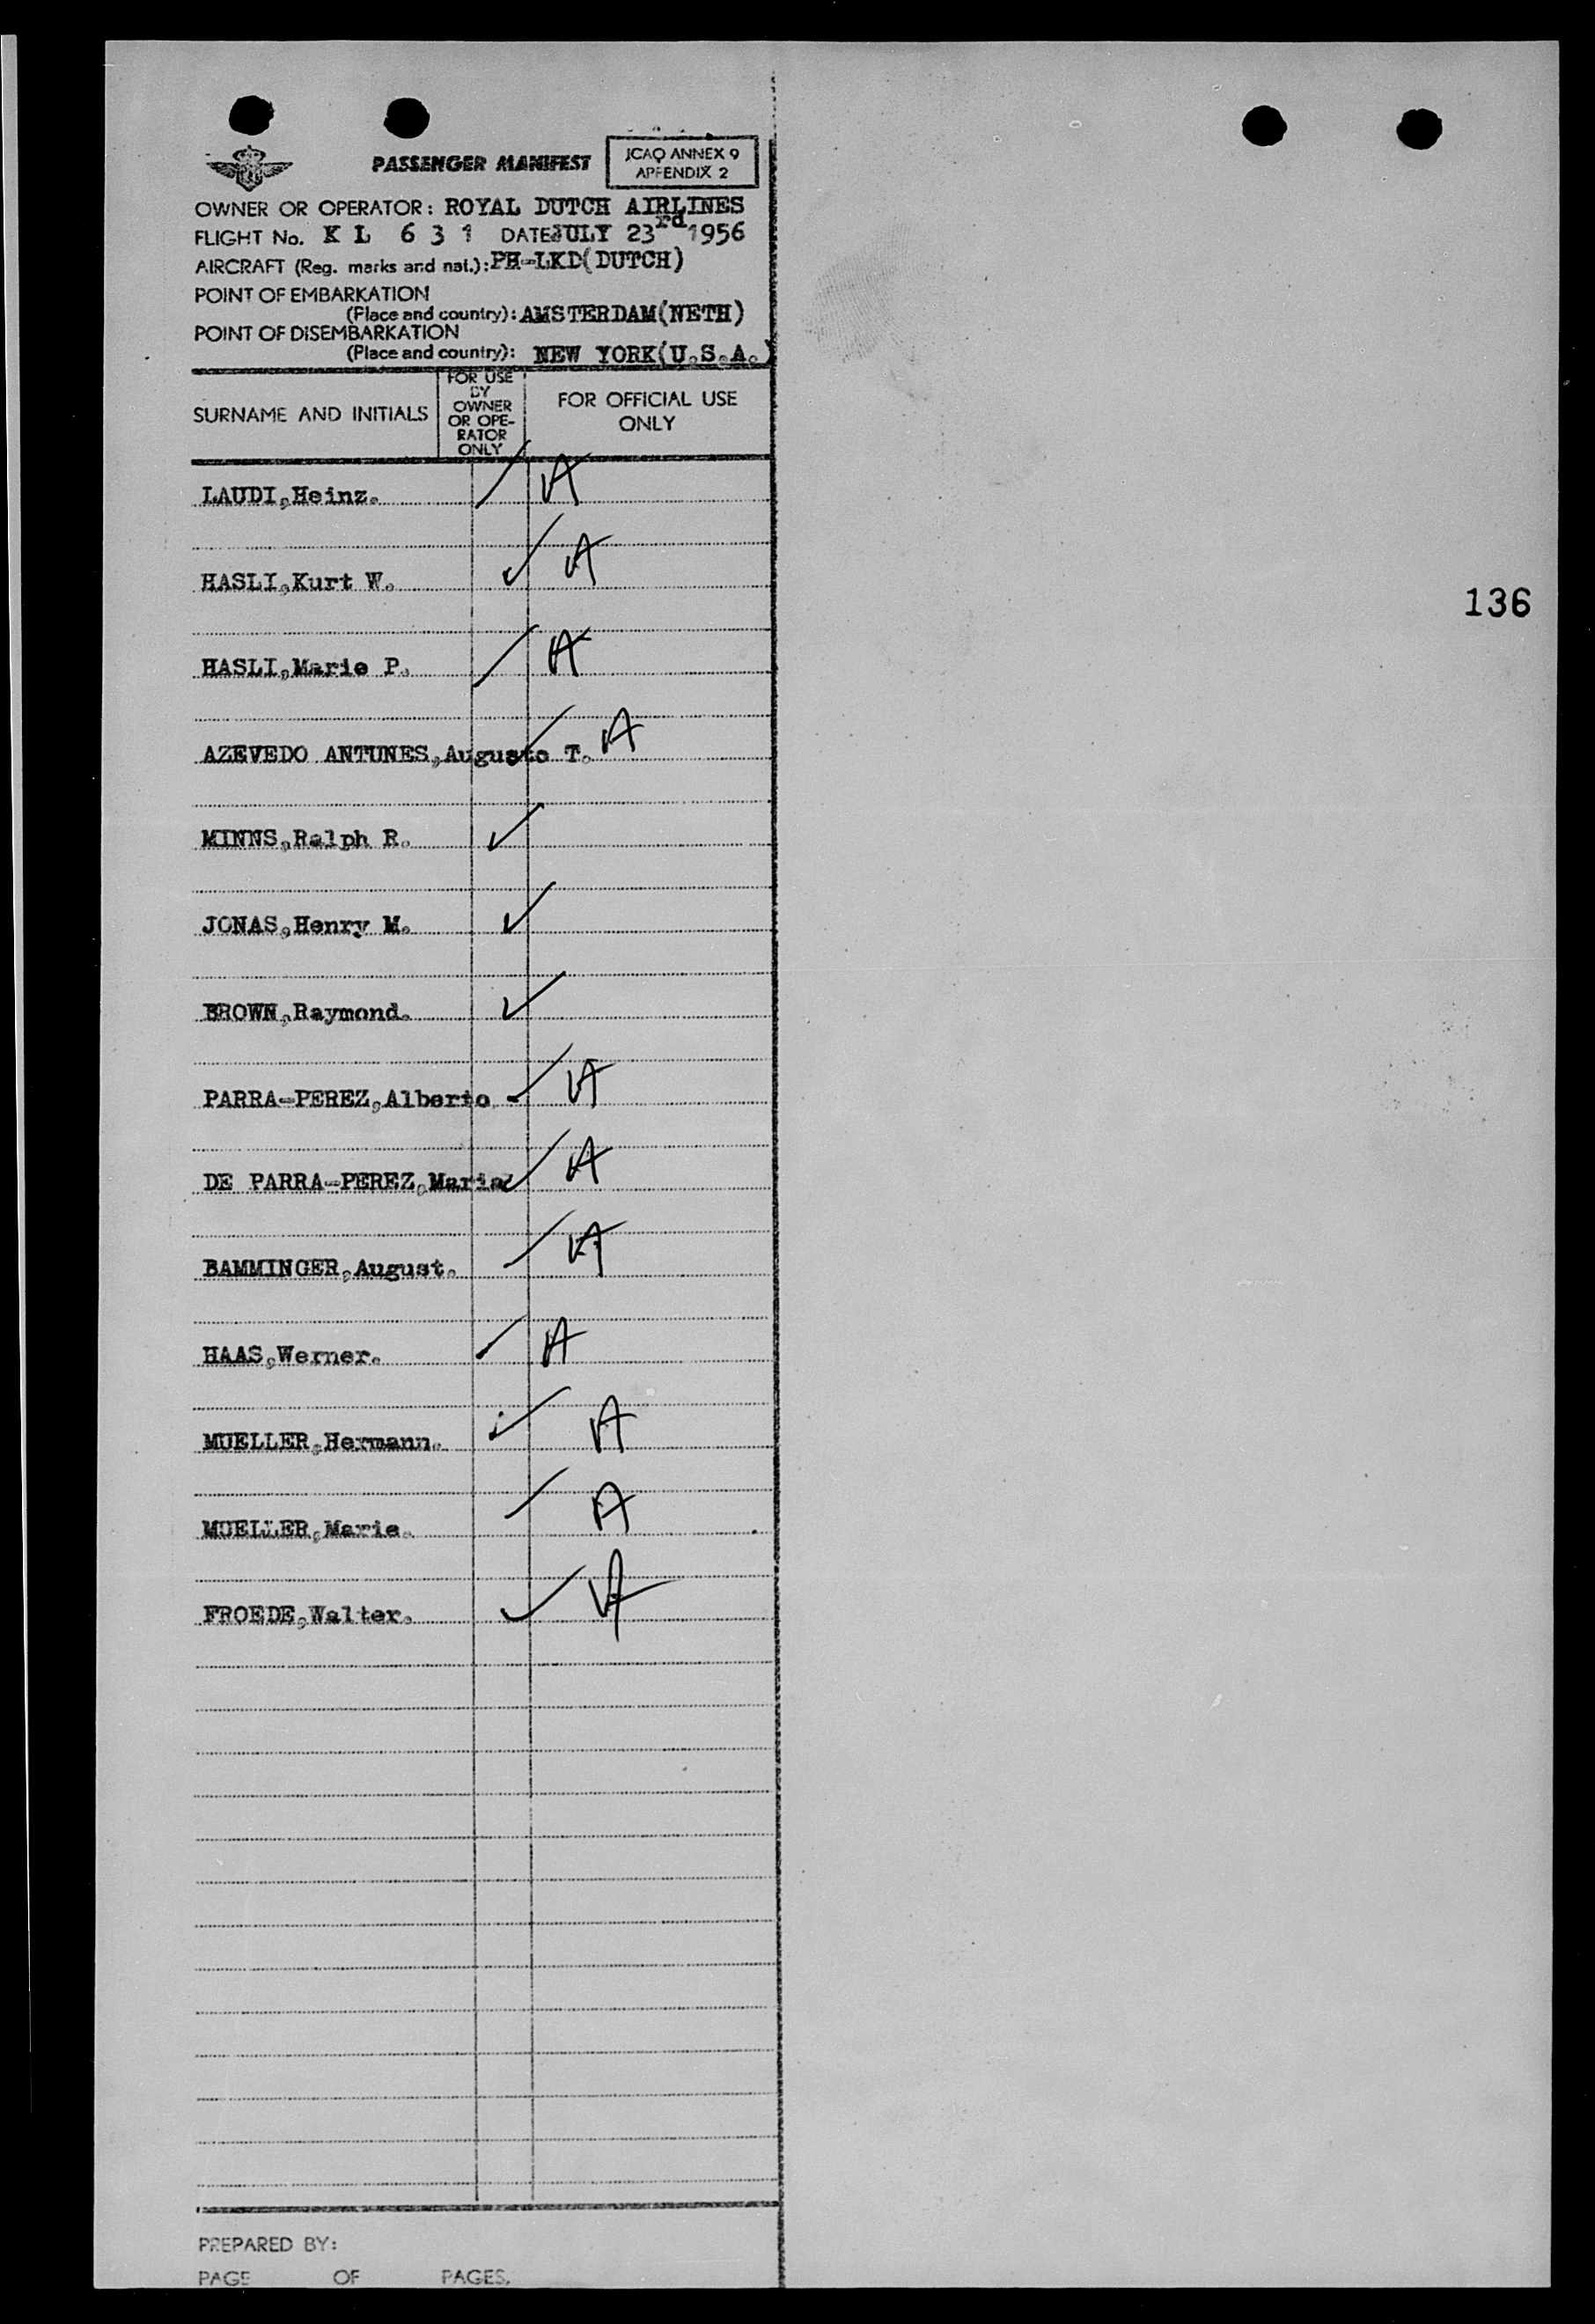 PASSENGER MANIFEST
ICAO ANNEX 9
APPENDIX 2
OWNER OR OPERATOR: ROYAL DUTCH AIRLINES
FLIGHT No. K L 6 3 1 DATE JULY 23rd 1956
AIRCRAFT (Reg. marks and nat.): PH-LKD(DUTCH)
POINT OF EMBARKATION
(Place and country): AMSTERDAM(NETH)
POINT OF DISEMBARKATION
(Place and country): NEW YORK(U.S.A.)
SURNAME AND INITIALS
FOR USE
BY
OWNER
OR OPE-
RATOR
ONLY
FOR OFFICIAL USE
ONLY
LAUDI, Heinz. A
HASLI, Kurt W. A
136
HASLI, Marie P. A
AZEVEDO ANTUNES, Augusto T. A
MINNS, Ralph R.
JONAS, Henry M.
BROWN, Raymond.
PARRA-PEREZ, Alberto A
DE PARRA-PEREZ, Maria A
BAMMINGER, August. A
HAAS, Werner. A
MUELLER, Hermann. A
MUELLER, Marie. A
FROEDE, Walter. A
PREPARED BY:
PAGE OF PAGES.